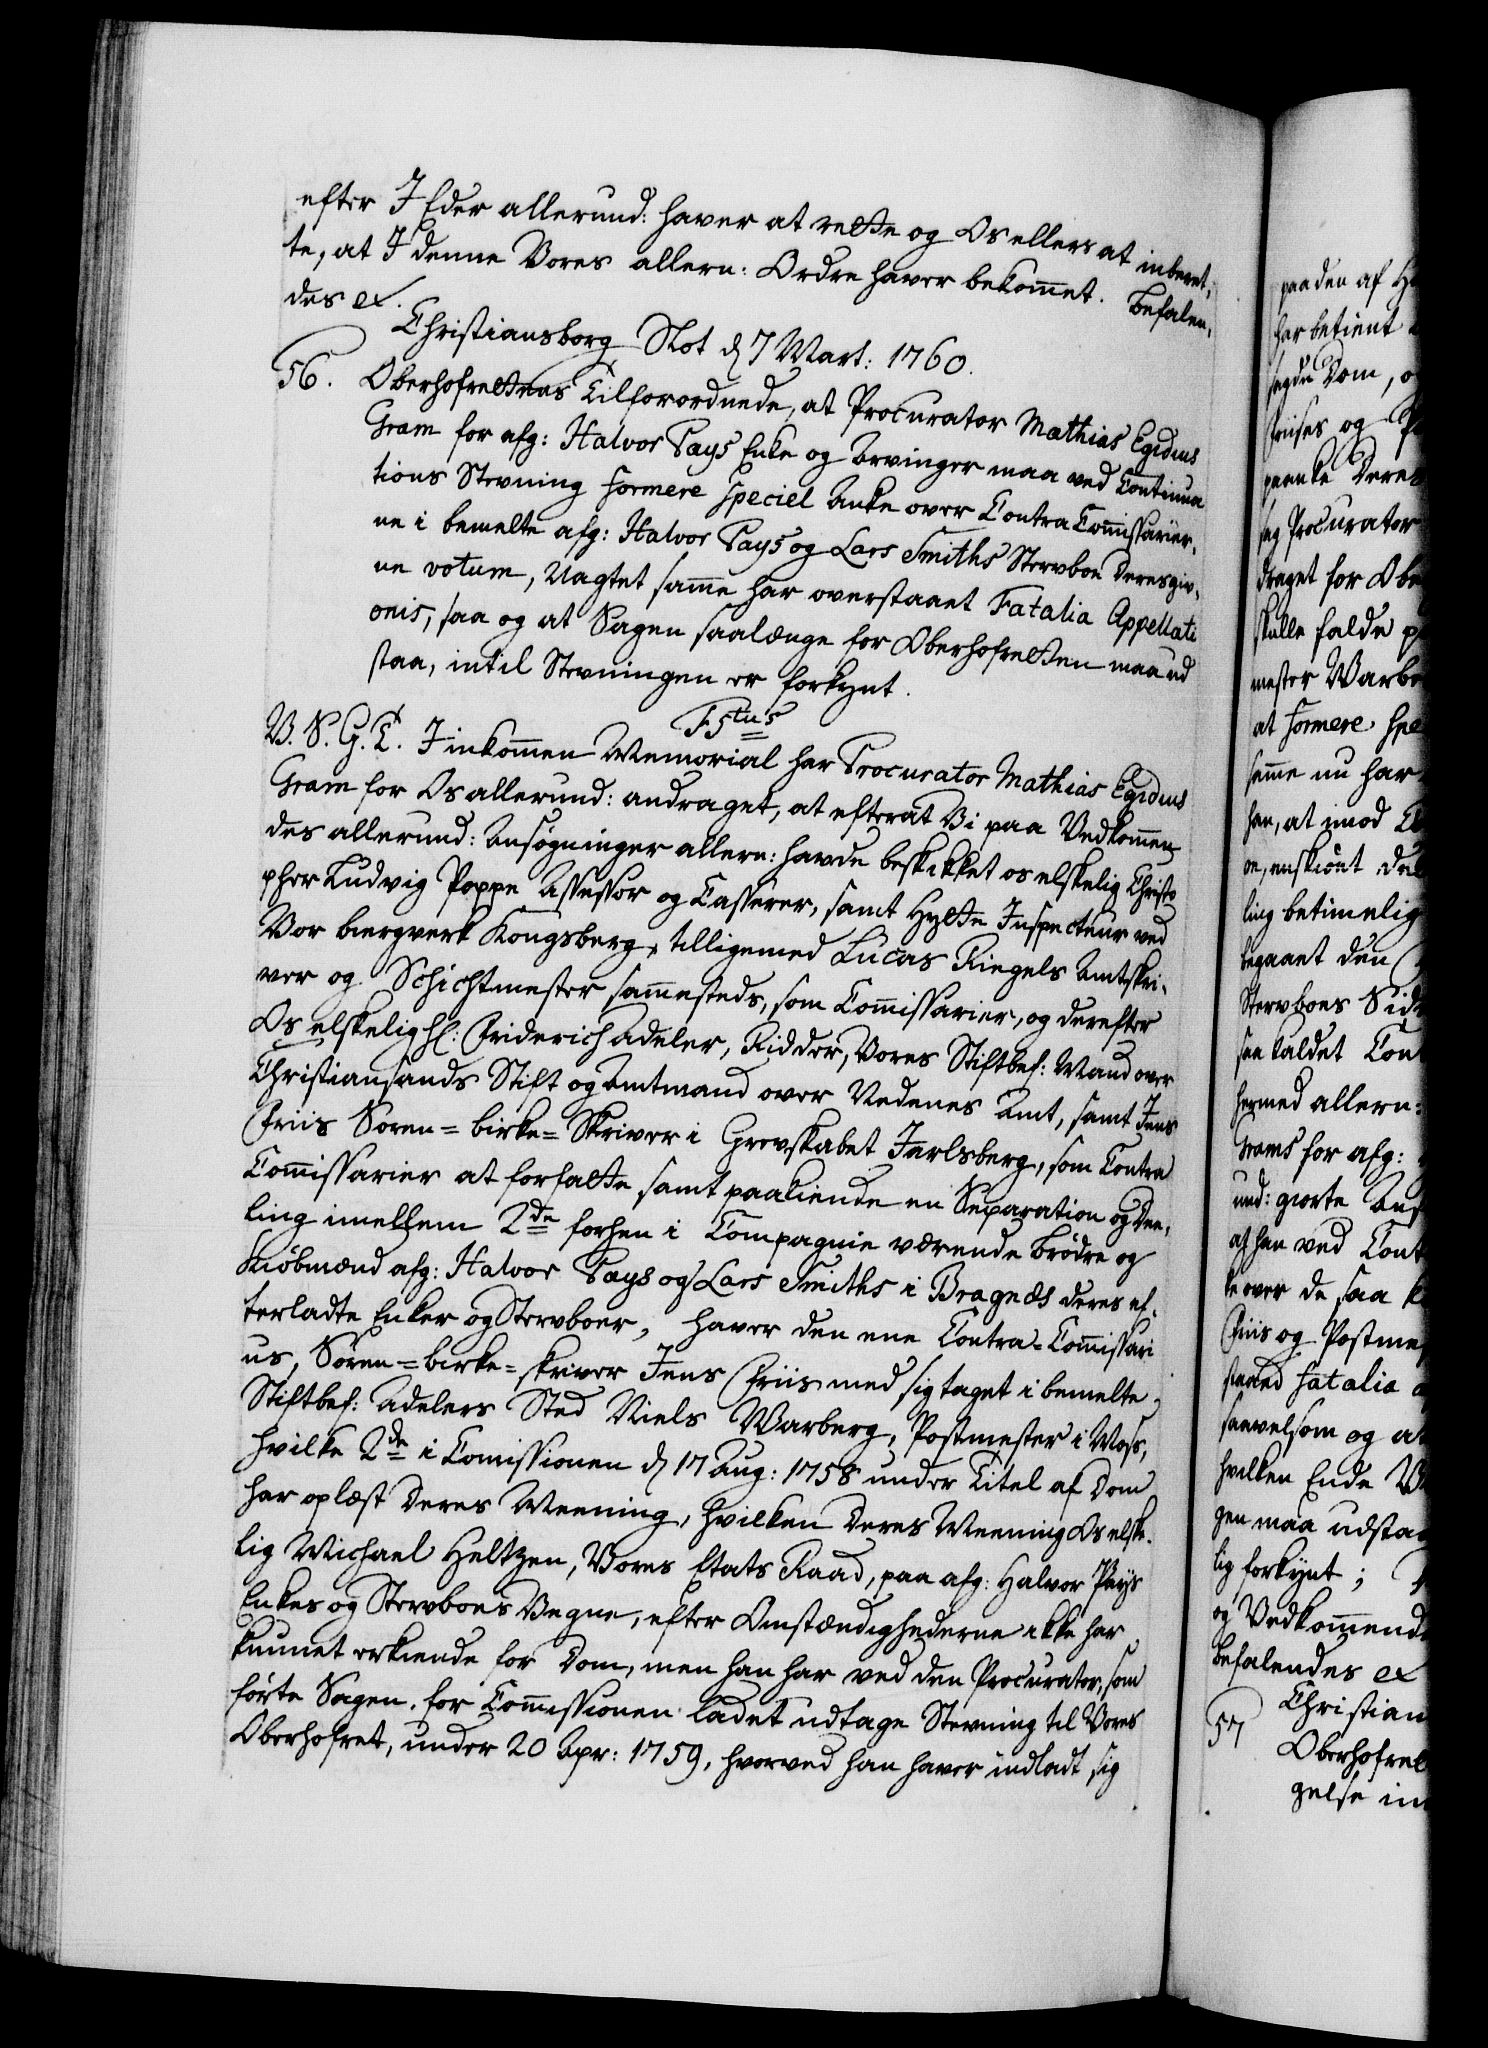 efter I Eder allerund: haver at rette og Os ellers at inberet,
te, at I denne Vores allern: Ordre haver bekommet. Befalen,
des etc.
Christiansborg Slot d 7 Mart: 1760.
56. Oberhofrettens Tilforordnede, at Procurator Mathias Egidius
Gram for afg: Halvor Pays Enke og Arvinger maa ved Continua
tions Stevning formere speciel Anke over Contra Commissarier,
ne i bemelte afg: Halvor Pays og Lars Smiths Stervboe deres giv,
ne votum, Uagtet samme har overstaaet Fatalia Appellati
onis, saa og at Sagen saalænge for Oberhofretten maa ud
staa, intil Stevningen er forkynt.
F5tus
V. S. G. T. I inkommen Memorial har Procurator Mathias Egidius
Gram for Os allerund: andraget, at efterat Vi paa Vedkommen,
des allerund: Ansøgninger allern: havde beskikket os elskelig Christo
pher Ludvig Poppe Assessor og Casserer, samt Hytte Inspecteur ved
Vor bergverk Kongsberg, tilligemed Lucas Riegels Amtskri,
ver og Schichtmester sammesteds, som Commissarier, og derefter
Os elskelig H: Friderich Adeler, Ridder, Vores Stiftbef: Mand over
Christiansands Stift og Amtmand over Nedenes Amt, samt Jens
Friis Soren=birke=Skriver i Grevskabet Jarlsberg, som Contra
Commissarier at forfatte samt paakiende en Separation og Dee,
ling imellem 2de forhen i Compagnie værende brødre og
Kiøbmænd afg: Halvor Pays og Lars Smiths i Bragnæs deres ef,
terladte Enker og Stervboer, haver den ene Contra=Commissari
us, Søren=birke=skriver Jens Friis med sig taget i bemelte
Stiftbef: Adelers Sted Niels Warberg, Postmester i Moss,
hvilke 2de i Comissionen d 17 Aug: 1758 under Titel af Dom
har oplæst deres Meening, hvilken deres Meening Os elske,
lig Michael Heltzen, Vores Etats Raad, paa afg: Halvor Pays
Enkes og Stervboes Vegne, efter Omstændighederne ikke har
kunnet erkiende for Dom, men han har ved den Procurator, som
førte Sagen for Commissionen ladet udtage Stevning til Vores
Oberhofret, under 20 Apr: 1759, hvorved han haver indladt sig
paaden af H
har betient
sagde Dom, o
Friises og
paanke Deres
sag Procurator
draget for Obe
skulle falde p
mester Warbe
at formere spe
samme nu har
han, at imod
oe, enskiønt de
ling betimelig
begaaet den
Stervboes Side
saa kaldet Cont
hermed allern:
Grams for afg:
und: giorte Ans
at han ved Cont
ke over de saa k
Friis og Postmes
staaed fatalia a
saavelsom og at
hvilken Ende V
gen maa udstaa
lig forkynt;
og Vedkommende
Befalendes etc
Christian
57 Oberhofret
gelse in